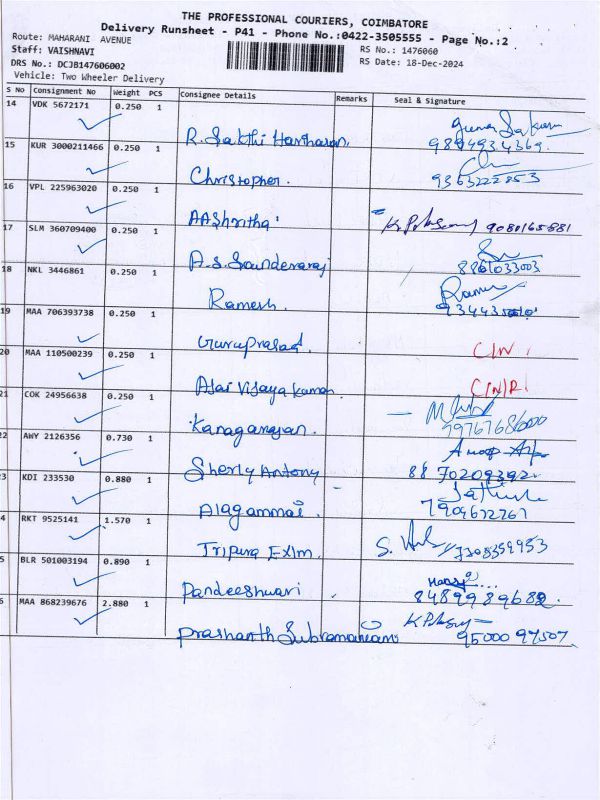 THE PROFESSIONAL COURIERS, COIMBATORE
Delivery Runsheet - P41 - Phone No.:0422-3505555 - Page No.:2
Route: MAHARANI AVENUE
RS No.: 1476060
Staff: VAISHNAVI
RS Date: 18-Dec-2024
DRS No.: DCJB147606002
Vehicle: Two Wheeler Delivery
S No Consignment No Weight PCS Consignee Details Remarks Seal & Signature
14 VDK 5672171 0.250 1
R. Sakthi Hariharan
15 KUR 3000211466 0.250 1
Christopher. 9363222853
16 VPL 225963020 0.250 1
AAshritha 9080165881
17 SLM 360709400 0.250 1
A.S. Sounderaraj 8861033003
18 NKL 3446861 0.250 1
Ramesh
19 MAA 706393738 0.250 1
Guruprasad. C/N
20 MAA 110500239 0.250 1
Asai Vijaya Kumar C/N/R
21 COK 24956638 0.250 1
Kanagarajan.
22 AWY 2126356 0.730 1
Sherly Antony 8870209392
3 KDI 233530 0.880 1
Alagammai 7904672761
4 RKT 9525141 1.570 1
Tripura Exim. 7308359953
5 BLR 501003194 0.890 1
Pandeeshwari 8489989682
6 MAA 868239676 2.880 1
Prashanth Subramaniam 95000 97507